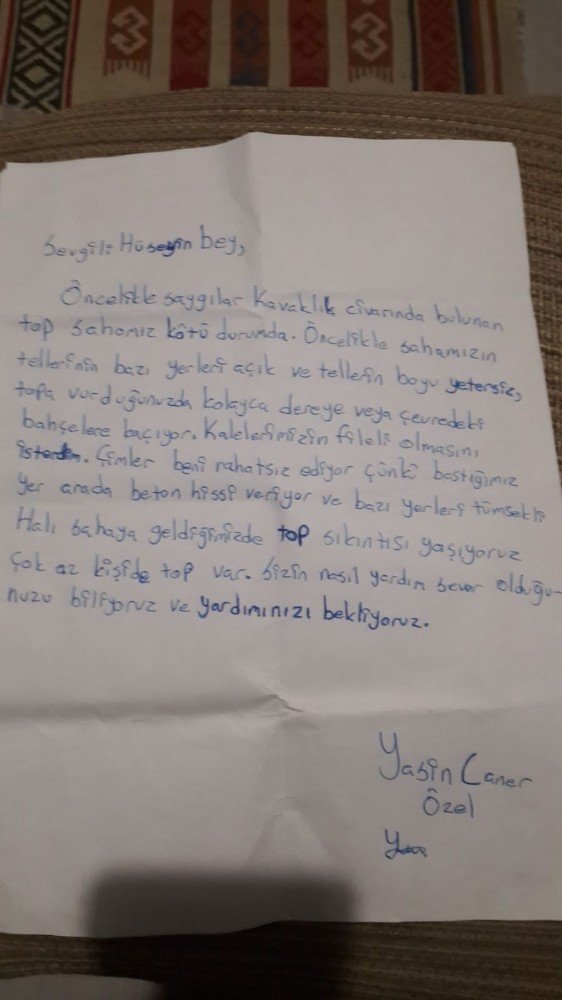 Sevgili Hüseyin bey,
Öncelikle saygılar Kavaklık civarında bulunan
top sahamız kötü durumda. Öncelikle sahamızın
tellerinin bazı yerleri açık ve tellerin boyu yetersiz,
topa vurduğunuzda kolayca dereye veya çevredeki
bahçelere kaçıyor. Kalelerimizin fileli olmasını
isterdim. Çimler beni rahatsız ediyor çünki bastığımız
yer arada beton hissi veriyor ve bazı yerleri tümsekli
Halı sahaya geldiğimizde top sıkıntısı yaşıyoruz
çok az kişide top var. Sizin nasıl yardım sever olduğu-
nuzu biliyoruz ve yardımınızı bekliyoruz.
Yasin Caner
Özel